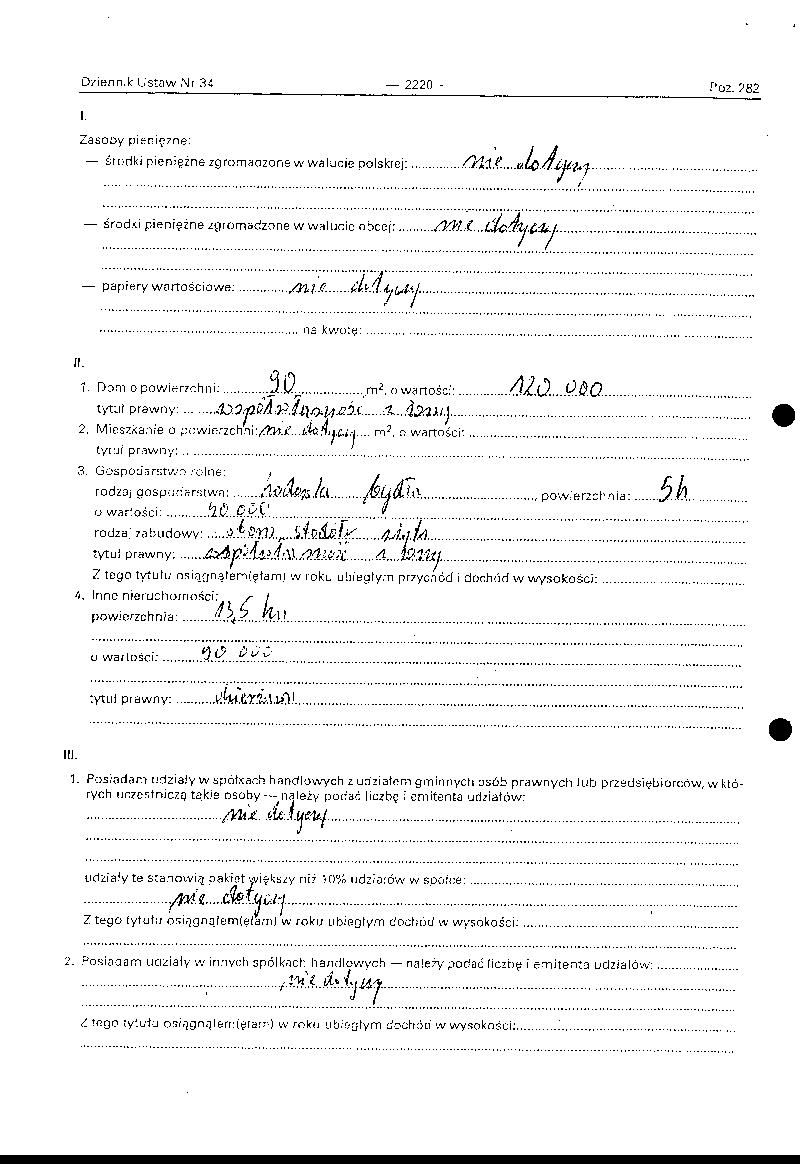 Dziennik Ustaw Nr 34 — 2220 - Poz. 282
I.
Zasoby pieniężne:
— środki pieniężne zgromadzone w walucie polskiej: nie dotyczy
— środki pieniężne zgromadzone w walucie obcej: nie dotyczy
— papiery wartościowe: nie dotyczy
na kwotę:
II.
1. Dom o powierzchni: 90 m², o wartości: 120 000
tytuł prawny: współwłasność z żoną
2. Mieszkanie o powierzchni: nie dotyczy m², o wartości:
tytuł prawny:
3. Gospodarstwo rolne:
rodzaj gospodarstwa: hodowla bydła, powierzchnia: 5h
o wartości: 40 000
rodzaj zabudowy: stodoły
tytuł prawny: współwłasność z żoną
Z tego tytułu osiągnąłem(ęłam) w roku ubiegłym przychód i dochód w wysokości:
4. Inne nieruchomości:
powierzchnia: 13,5 ha
o wartości: 90 000
tytuł prawny:
III.
1. Posiadam udziały w spółkach handlowych z udziałem gminnych osób prawnych lub przedsiębiorców, w któ-
rych uczestniczą takie osoby — należy podać liczbę i emitenta udziałów:
nie dotyczy
udziały te stanowią pakiet większy niż 10% udziałów w spółce:
nie dotyczy
Z tego tytułu osiągnąłem(ęłam) w roku ubiegłym dochód w wysokości:
2. Posiadam udziały w innych spółkach handlowych — należy podać liczbę i emitenta udziałów:
nie dotyczy
Z tego tytułu osiągnąłem(ęłam) w roku ubiegłym dochód w wysokości: